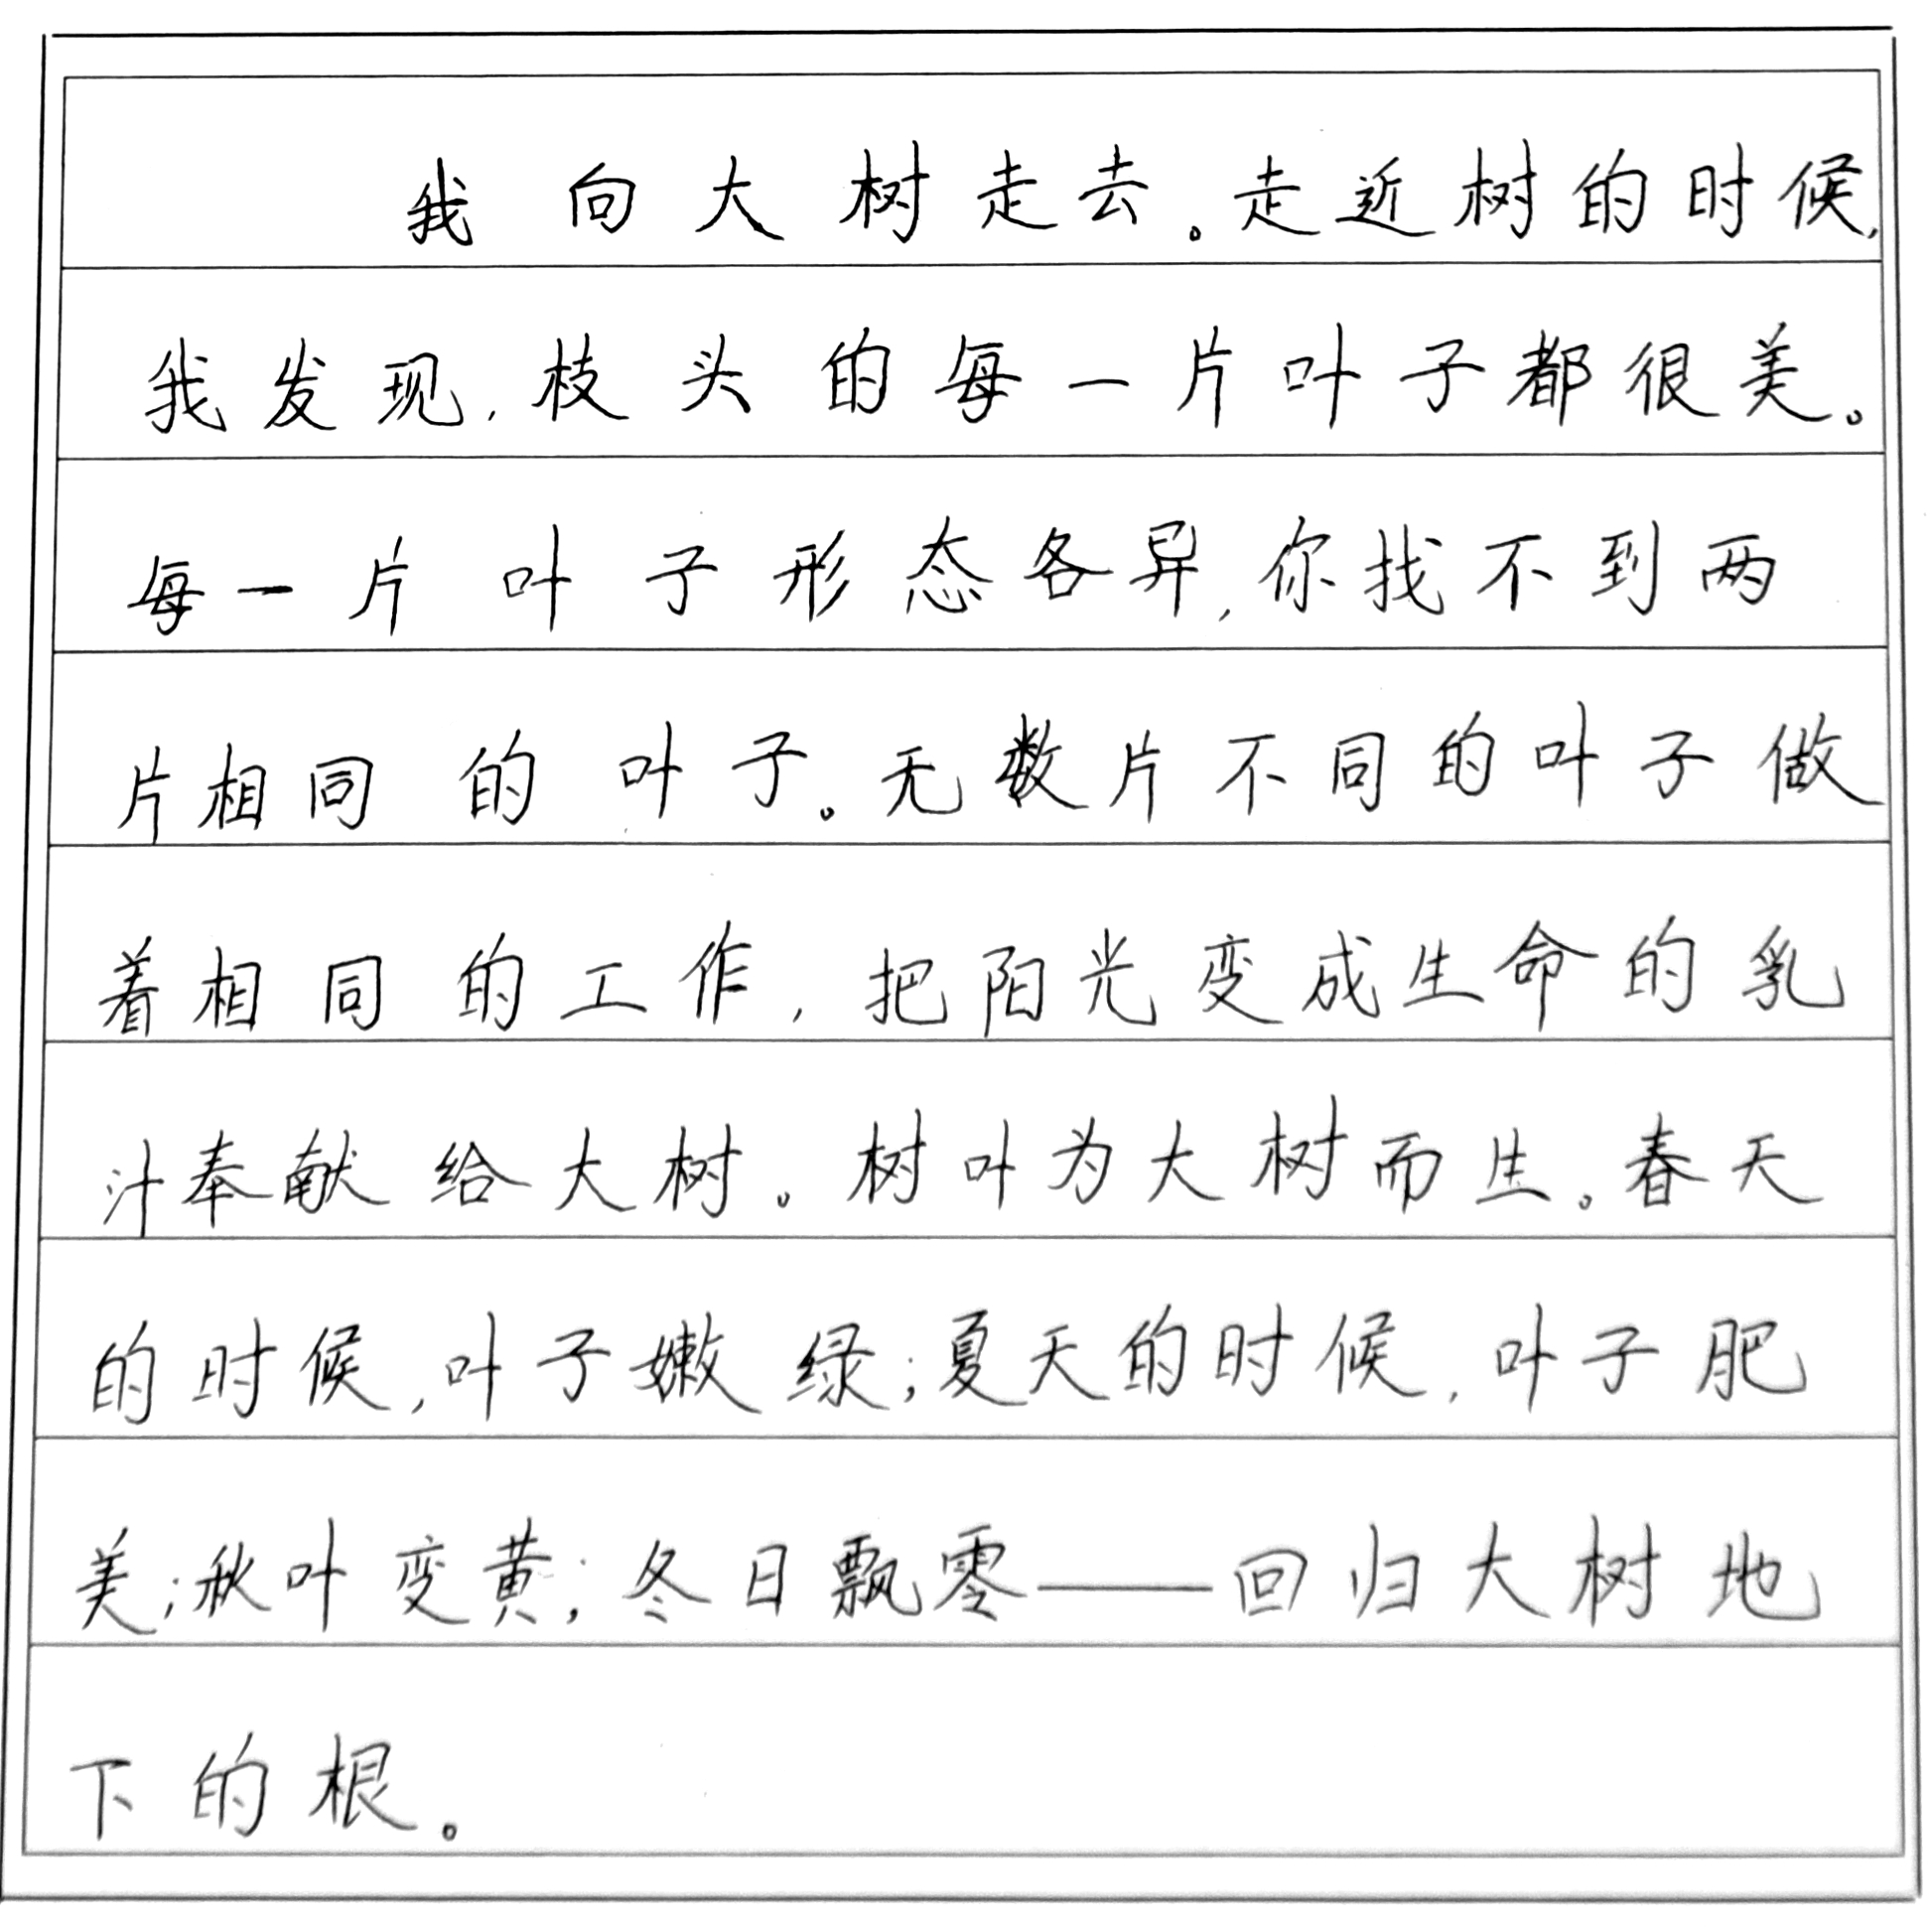 我向大树走去。走近树的时候,
我发现,枝头的每一片叶子都很美。
每一片叶子形态各异,你找不到两
片相同的叶子。无数片不同的叶子做
着相同的工作,把阳光变成生命的乳
汁奉献给大树。树叶为大树而生。春天
的时候,叶子嫩绿;夏天的时候,叶子肥
美;秋叶变黄;冬日飘零——回归大树地
下的根。